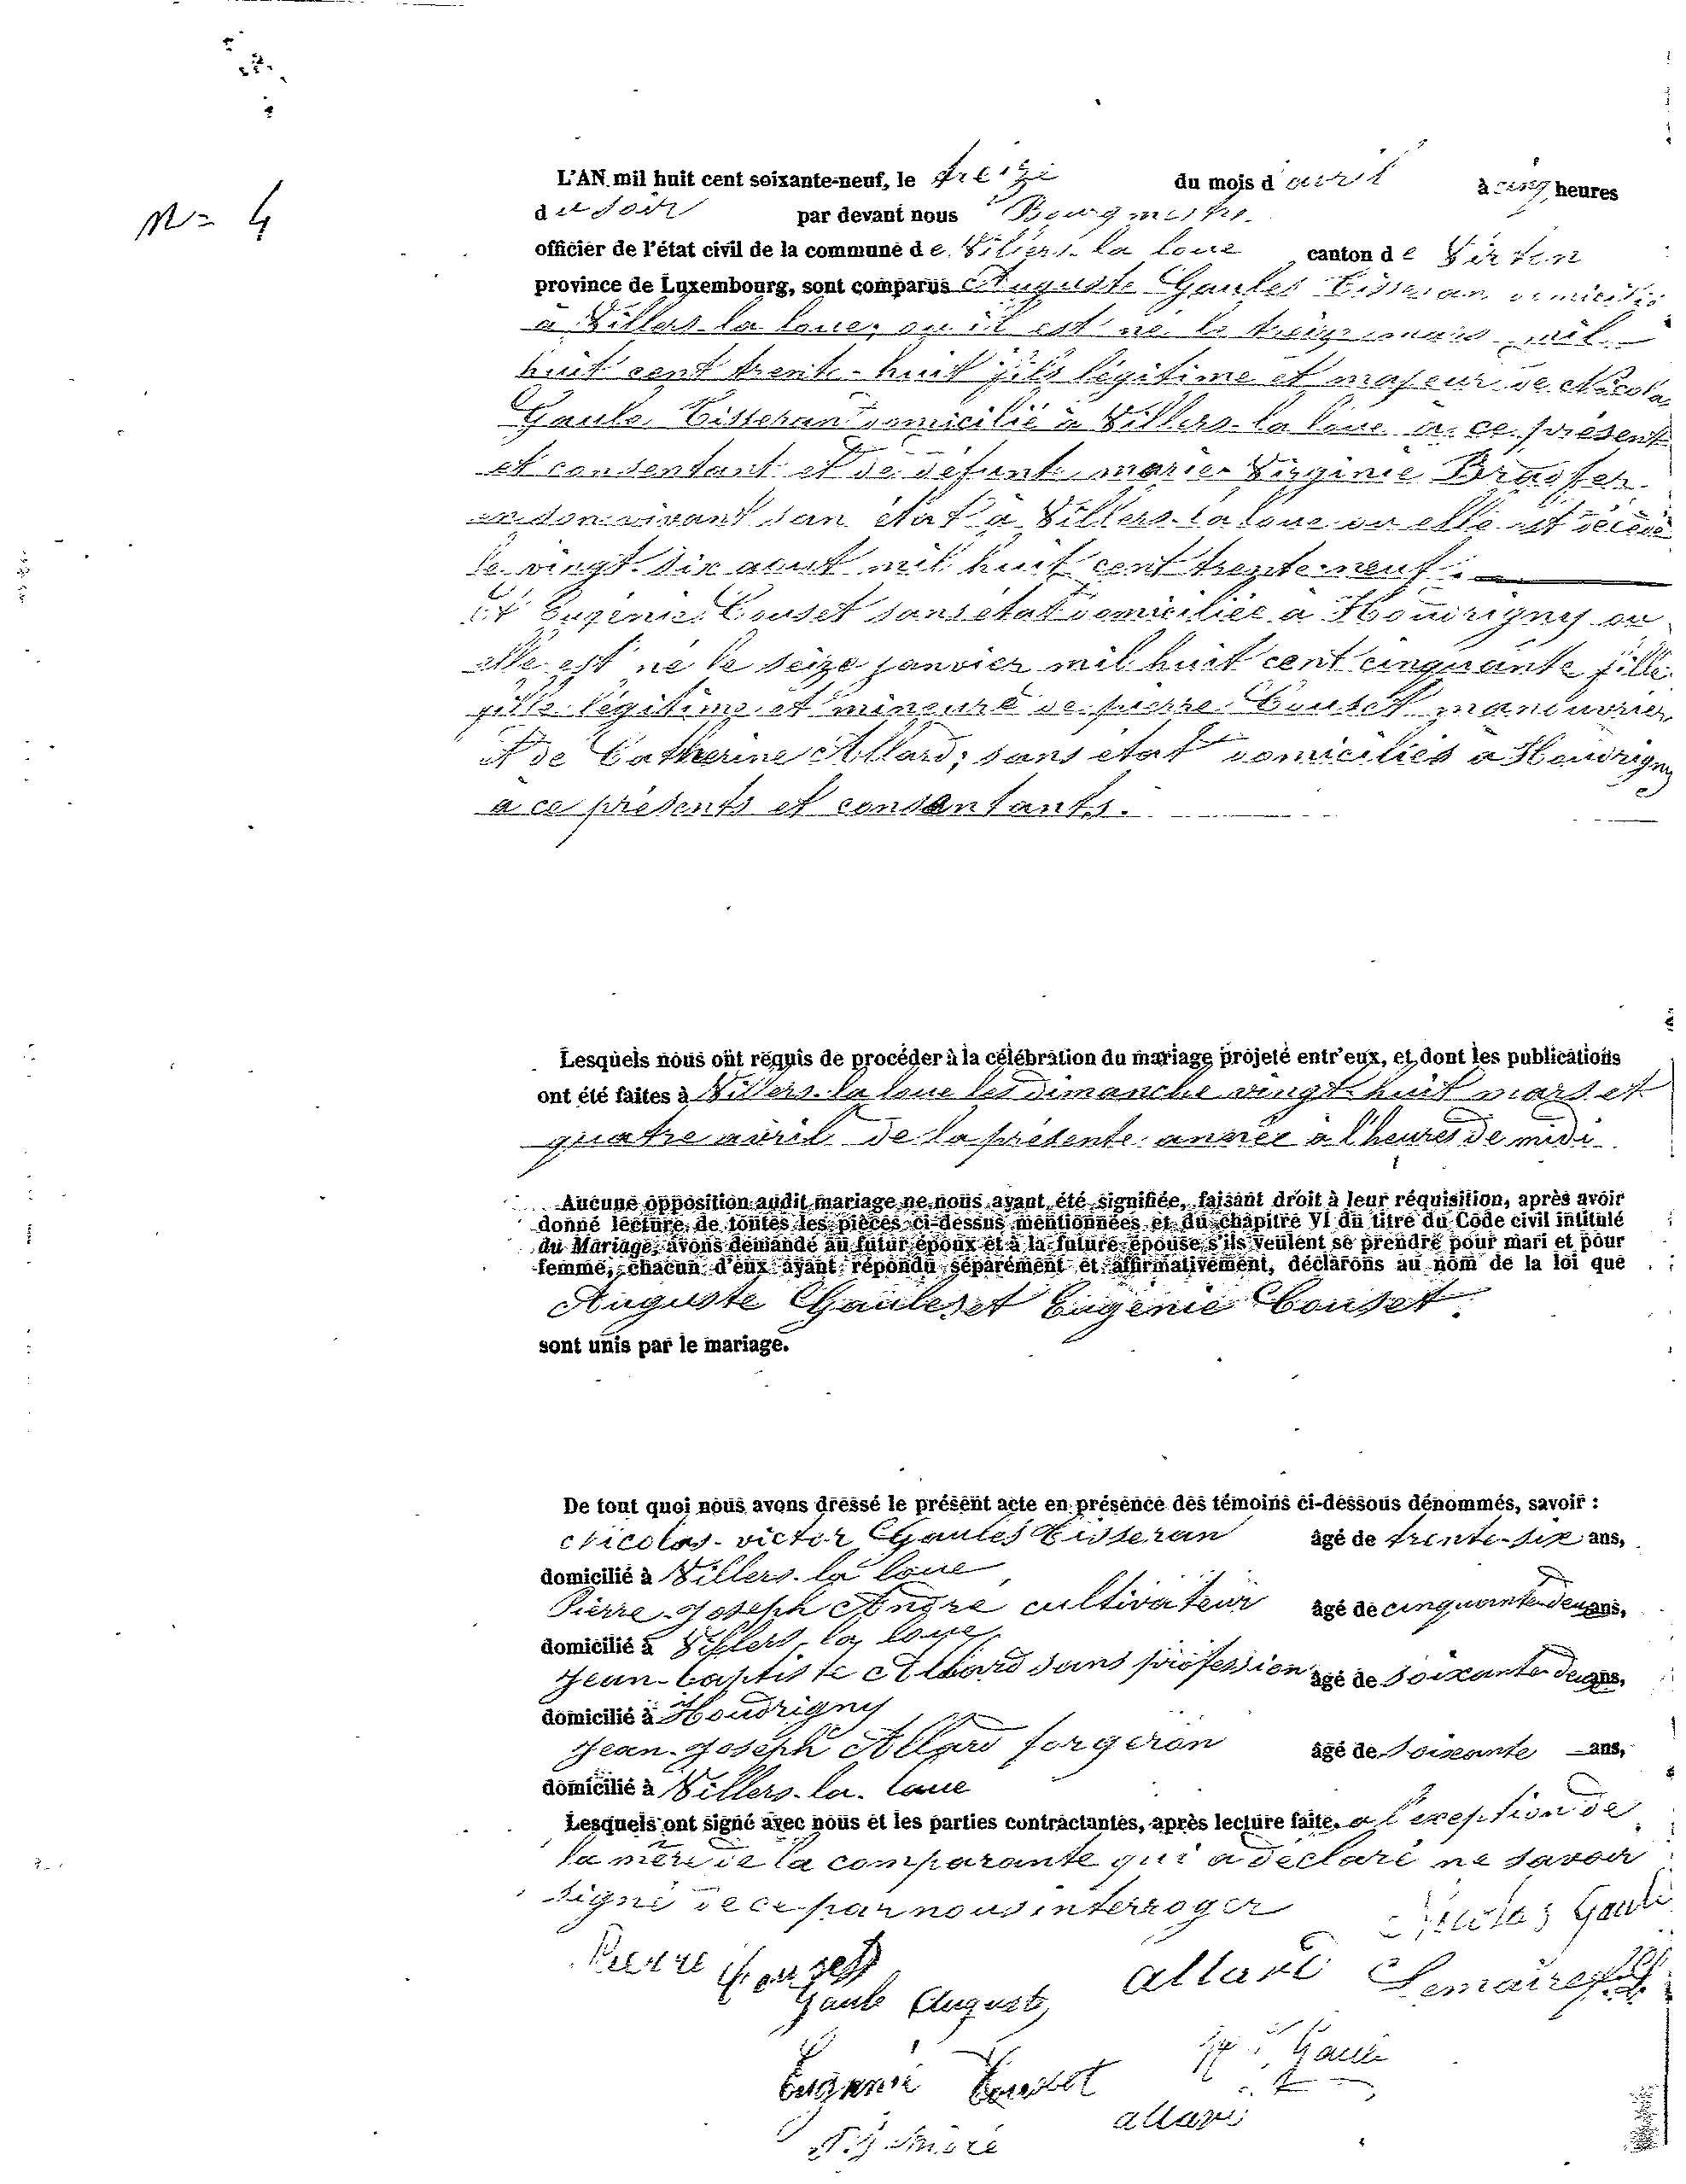 N= 4
L'AN mil huit cent soixante-neuf, le treize du mois d'avril à cinq heures
du soir par devant nous Bourgmestre
officier de l'état civil de la commune de Villers-la-loue canton de Virton
province de Luxembourg, sont comparus Auguste Gaules Tisseran domicilié
à Villers-la-loue, ou il est né le treize mars mil
huit cent trente-huit fils légitime et majeur de Nicolas
Gaule, Tisseran domicilié à Villers-la-loue à ce présent
et consentant et de défunte marie Virginie
en son vivant san état à Villers-la-loue ou elle est décédé
le vingt-six aout mil huit cent trente-neuf.
Et Eugénie Couset sans état domiciliée à Houdrigny ou
elle est né le seize janvier mil huit cent cinquante fille
fille légitime et mineure de pierre Couset manouvrier
et de Catherine Allard, sans état domiciliés à Houdrigny
à ce présents et consentants.
Lesquels nous ont requis de procéder à la célébration du mariage projeté entr'eux, et dont les publications
ont été faites à Villers-la-loue les dimanche vingt-huit mars et
quatre avril de la présente année à l'heures de midi
Aucune opposition audit mariage ne nous ayant été signifiée, faisant droit à leur réquisition, après avoir
donné lecture de toutes les pièces ci-dessus mentionnées et du chapitre VI du titre du Code civil intitulé
du Mariage, avons demandé au futur époux et à la future épouse s'ils veulent se prendre pour mari et pour
femme, chacun d'eux ayant répondu séparément et affirmativement, déclarons au nom de la loi que
Auguste Gaules et Eugénie Couset
sont unis par le mariage.
De tout quoi nous avons dressé le présent acte en présence des témoins ci-dessous dénommés, savoir :
Nicolas-victor Gaules Tisseran âgé de trente-six ans,
domicilié à Villers-la loue
Pierre-Joseph André cultivateur âgé de cinquante-deux ans,
domicilié à Villers-la loue
Jean-baptiste Allard sans profession âgé de soixante-deux ans,
domicilié à Houdrigny
Jean-Joseph Allard forgeron âgé de soixante ans,
domicilié à Villers-la-loue
Lesquels ont signé avec nous et les parties contractantes, après lecture faite, a l'exeption de
la mère de la comparante qui a déclaré ne savoir
signé de ce par nous interroger
Nicolas Gaule
Pierre Couset
allard Lemaire
Gaule Auguste
Gaule
Eugénie Couset
allard